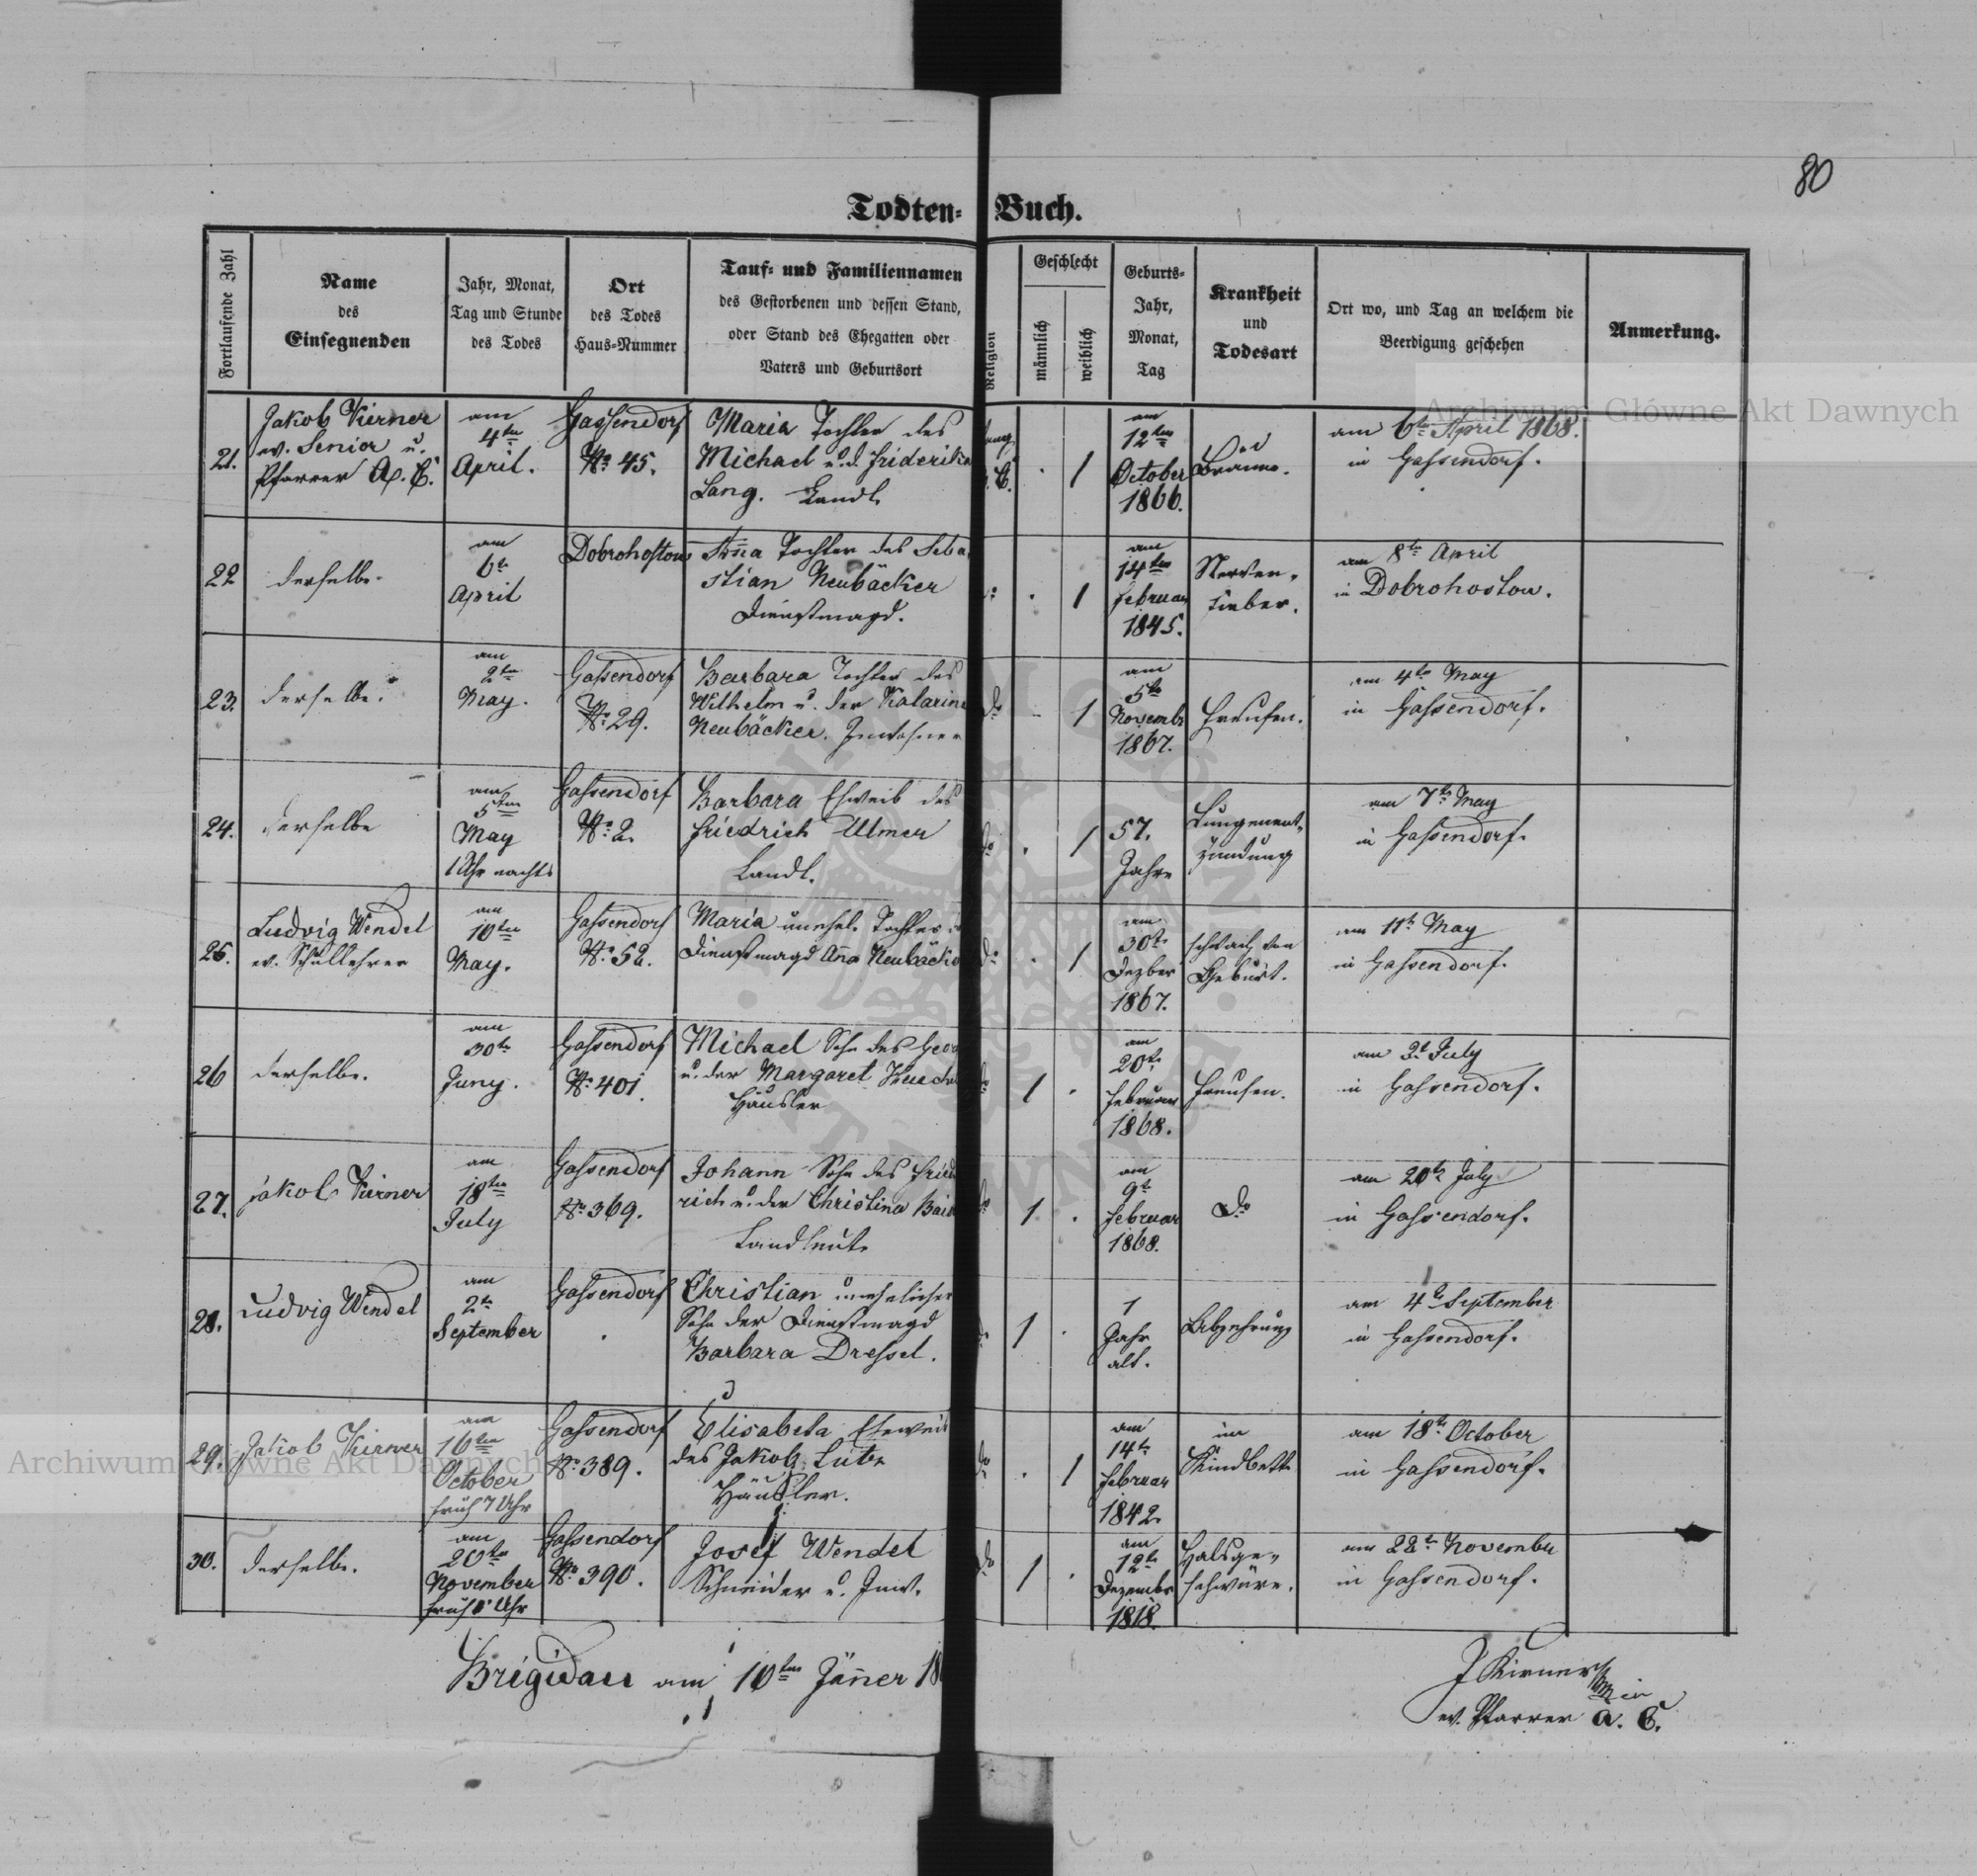 80
Todten- Buch.
Fortlaufende Zahl
Name
des
Einsegnenden
Jahr, Monat,
Tag und Stunde
des Todes
Ort
des Todes
Haus-Nummer
Tauf- und Familiennamen
des Gestorbenen und dessen Stand,
oder Stand des Ehegatten oder
Vaters und Geburtsort
Religion
Geschlecht
männlich
weiblich
Geburts-
Jahr,
Monat,
Tag
Krankheit
und
Todesart
Ort wo, und Tag an welchem die
Beerdigung geschehen
Anmerkung.
21.
Jakob Kirner
ev. Senior u.
Pfarrer A. C.
am
4ten
April.
Gassendorf
No. 45.
Maria Tochter des
Michael u. d. Friderika
Lang. Landl.
1
am
12ten
October
1866.
Bräune.
am 6ten April 1868.
in Gassendorf.
22
derselbe.
am
6te
April
Dobrohostow
Anna Tochter des Seba
stian Neubäcker
Dienstmagd.
1
am
14ten
Februar
1845.
Nerven-
fieber.
am 8te April
in Dobrohostow.
23.
derselbe.
am
2ten
May.
Gassendorf
No. 29.
Barbara Tochter des
Wilhelm u. der Katarina
Neubäcker. Inwohner
do
1
am
5te
Novemb.
1867.
Freusen.
am 4te May
in Gassendorf.
24.
derselbe
am
5ten
May
1 Uhr nachts
Gassendorf
No. 2.
Barbara Ehweib des
Friedrich Ulmer
Landl.
do
1
57.
Jahre
Lungenent-
zündung
am 7te May
in Gassendorf.
25.
Ludvig Wendel
ev. Schullehrer
am
10ten
May.
Gassendorf
No. 52.
Maria unehel. Tochter d
Dienstmagd Anna Neubäcke
do
1
am
30te
Dezber
1867.
schwach von
Geburt.
am 11te May
in Gassendorf.
26
derselbe.
am
30te
Juny.
Gassendorf
No. 401.
Michael Sohn des Geor
u. der Margaret
Häusler
1
am
20te
Februar
1868.
Freusen.
am 2t July
in Gassendorf.
27.
Jakob Kirner
am
18ten
July
Gassendorf
No. 369.
Johann Sohn des Fried
rich u. der Christina
Landleute
do
1
am
9te
Februar
1868.
do
am 20te July
in Gassendorf.
28.
Ludvig Wendel
am
2te
September
Gassendorf
Christian unehelicher
Sohn der Dienstmagd
Barbara Dressel.
1
1
Jahr
alt.
Abzehrung
am 4te September
in Gassendorf.
29.
Jakob Kirner
am
16ten
October
früh 7 Uhr
Gassendorf
No. 389.
Elisabeta Eheweib
des Jakob Lutz
Häusler.
do
1
am
14te
Februar
1842.
im
Kindbette
am 18te October
in Gassendorf.
30.
derselbe.
am
20ten
November
früh Uhr
Gassendorf
No. 390.
Josef Wendel
Schneider u. Inw.
do
1
am
12te
Dezember
1818.
Halsge-
schwüre.
am 22te November
in Gassendorf.
Brigidau am 10ten Jänner 18
J Kirner
ev. Pfarrer A. C.
Archiwum Główne Akt Dawnych
Archiwum Główne Akt Dawnych